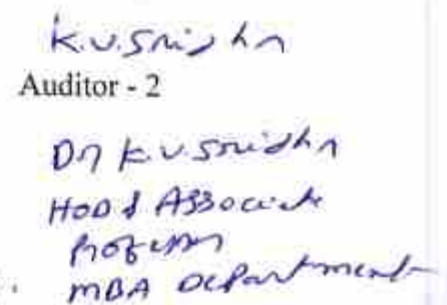 K.V.Sridhr
Auditor - 2
Dr K.V Sridhr
HOD & Associate
Professor
MBA Department